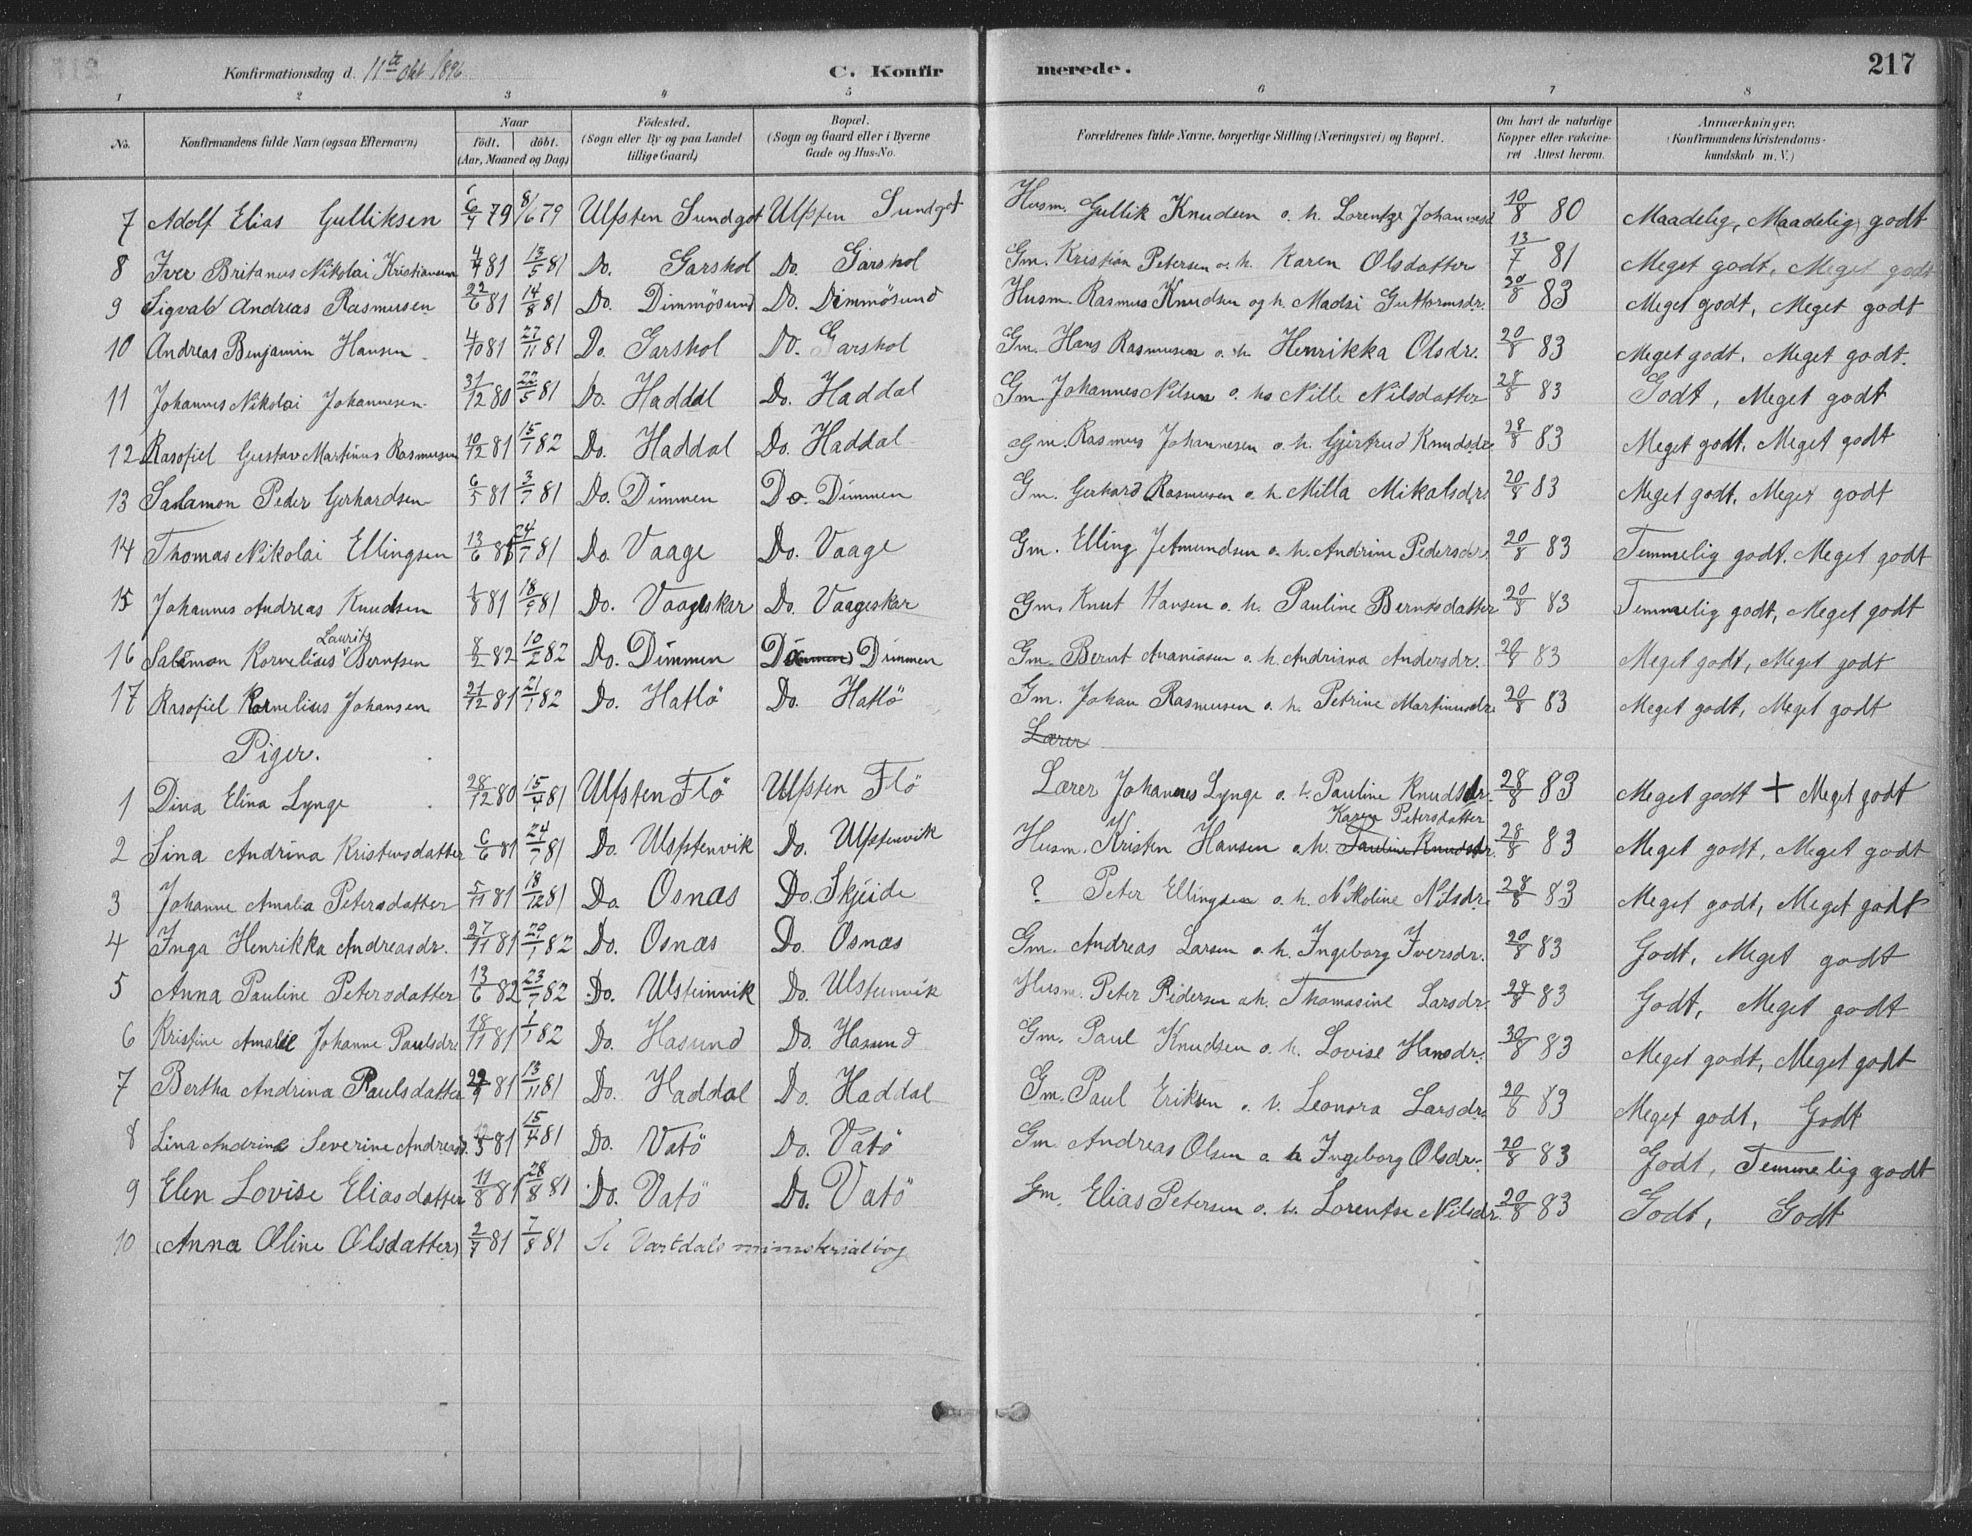 Konfirmationsdag d. 11te Okt 1896 C. Konfirmerede. 217
1 2 3 4 5 6 7 8
No. Konfirmandens fulde Navn (ogsaa Efternavn) Naar født. døbt. (Aar, Maaned og Dag) Fødested. (Sogn eller By og paa Landet tillige Gaard) Bopæl. (Sogn og Gaard eller i Byerne Gade og Hus-No. Forældrenes fulde Navne, borgerlige Stilling (Næringsvei) og Bopæl. Om havt de naturlige Kopper eller vakcineret Attest herom. Anmærkninger, (Konfirmandens Kristendomskundskab m. V.)
7 Adolf Elias Gulliksen 6/4 79 8/6 79 Ulfsten Sundgot Ulfsten Sundgot Husm. Gullik Knudsen o. h. Lorentze Johannesd 10/8 80 Maadelig, Maadelig godt
8 Iver Britanus Nikolai Kristiansen 4/4 81 13/5 81 Do. Garshol Do. Garshol Gm. Kristian Petersen o. h. Karen Olsdatter 13/7 81 Meget godt, Meget godt
9 Sigvald Andreas Rasmusen 22/6 81 14/8 81 Do. Dimmøsund Do. Dimmøsund Husm. Rasmus Knudsen og h. Madsi Guttormsdr. 20/8 83 Meget godt, Meget godt
10 Andreas Benjamin Hansen 4/10 81 27/11 81 Do. Garshol Do. Garshol Gm. Hans Rasmusen o. h. Henrikka Olsdr. 20/8 83 Meget godt. Meget godt.
11 Johannes Nikolai Johannesen 31/12 80 22/5 81 Do. Haddal Do. Haddal Gm. Johannes Nilsen o. hs Nille Nilsdatter 28/8 83 Godt, Meget godt
12 Rasofiel Gustav Martinus Rasmusen 10/12 81 15/1 82 Do. Haddal Do. Haddal Gm. Rasmus Johannesen o. h. Gjertrud Knudsdr. 28/8 83 Meget godt. Meget godt
13 Salamon Peder Gerhardsen 6/5 81 3/7 81 Do. Dimmen Do. Dimmen Gm. Gerhard Rasmusen o. h. Milla Mikalsdr. 20/8 83 Meget godt, Meget godt
14 Thomas Nikolai Ellingsen 13/6 81 24/7 81 Do Vaage Do. Vaage Gm. Elling Jetmundsen o. h. Andrine Pedersdr. 20/8 83 Temmelig godt. Meget godt
15 Johannes Andreas Knudsen 6/8 81 18/9 81 Do. Vaageskar Do. Vaageskar Gm. Knut Hansen o. h. Pauline Berntsdatter 20/8 83 Temmelig godt, Meget godt
Lauritz
16 Salomon Kornelius Berntsen 8/2 82 10/2 82 Do. Dimmen Do. Dimmen Gm. Bernt Ananiasen o. h. Andriana Andersdr. 20/8 83 Meget godt, Meget godt
17 Rasofiel Kornelius Johansen 21/12 81 21/1 82 Do. Hatlø Do. Hatlø Gm. Johan Rasmusen o. h. Petrine Martinusdr. 20/8 83 Meget godt, Meget godt
Lærer
Piger.
1 Dina Elina Lynge 28/12 80 15/4 81 Ulfsten Flø Ulfsten Flø Lærer Johannes Lynge o. h. Pauline Knudsdr. 28/8 83 Meget godt + Meget godt
Karen Petersdatter
2 Sina Andrina Kristensdatter 6/6 81 24/7 81 Do. Ulfstenvik Do. Ulfstenvik Husm. Kristen Hansen o. h. Pauline Knudsdr. 28/8 83 Meget godt, Meget godt
3 Johanne Amalia Petersdatter 5/11 81 18/12 81 Do Osnæs Do. Skjeide ? Peter Ellingsen o. h. Nikoline Nilsdr. 28/8 83 Meget godt, Meget godt
4 Inga Henrikka Andreasdr. 27/11 81 20/1 82 Do. Osnæs Do. Osnæs Gm. Andreas Larsen o. h. Ingeborg Iversdr. 20/8 83 Godt, Meget godt
5 Anna Pauline Petersdatter 13/6 82 23/7 82 Do. Ulsteinvik Do. Ulsteinvik Husm. Peter Pedersen o. h. Thomasine Larsdr. 28/8 83 Godt, Meget godt
6 Kristine Amalie Johanne Paulsdr. 18/11 81 1/1 82 Do. Hasund Do. Hasund Gm. Paul Knudsen o. h. Lovise Hansdr. 30/8 83 Meget godt, Meget godt
7 Bertha Andrina Paulsdatter 29/9 81 13/11 81 Do. Haddal Do. Haddal Gm. Paul Eriksen o. h. Leonora Larsdr. 20/8 83 Meget godt, Godt
8 Lina Andrine Severine Andreasd. 81 15/4 81 Do. Vatø Do. Vatø Gm. Andreas Olsen o. h Ingeborg Olsdr. 20/8 83 Godt, Temmelig godt
9 Elen Lovise Eliasdatter 11/8 81 28/8 81 Do. Vatø Do. Vatø Gm. Elias Petersen o. h. Lorentse Nilsdr. 20/8 83 Godt, Godt
10 (Anna Oline Olsdatter) 2/7 81 7/8 81 Se Vartdals ministerialbog